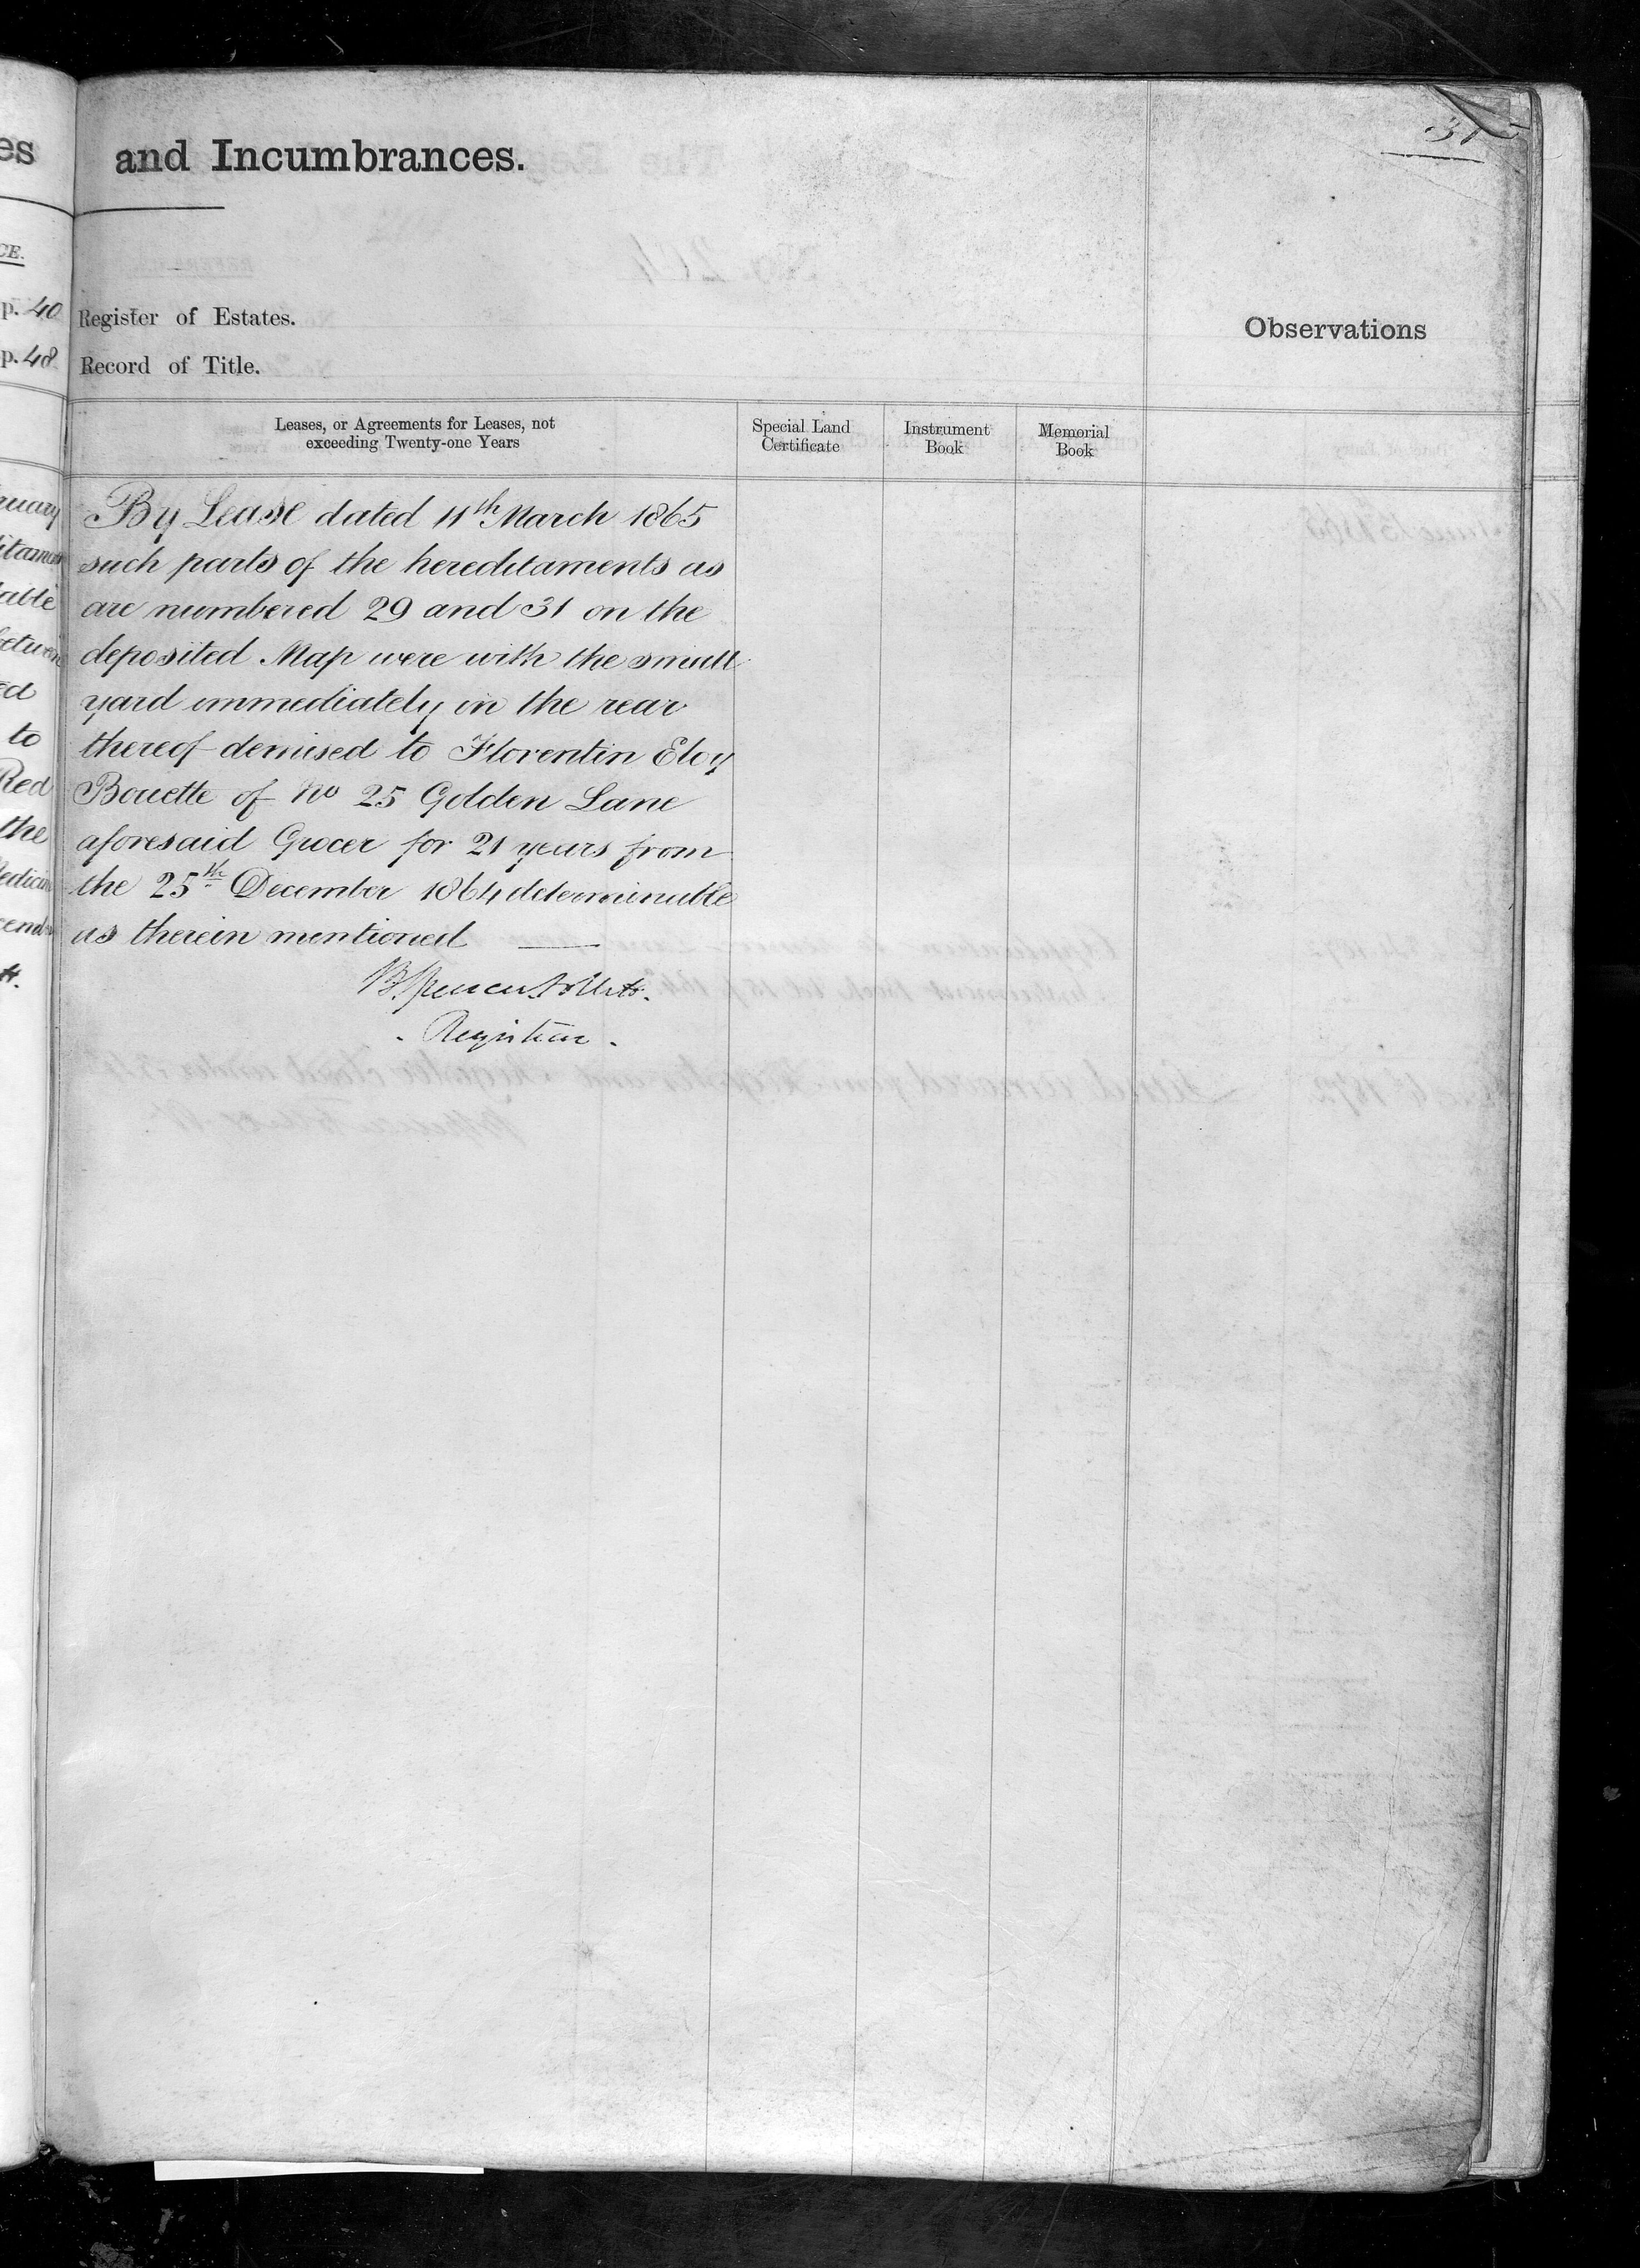 es
and Incumbrances.
31
CE.
p. 40
Register of Estates.
p. 48
Record of Title.
Observations
Leases, or Agreements for Leases, not
exceeding Twenty-one Years
Special Land
Certificate
Instrument
Book
Memorial
Book
By Lease dated 11th March 1865
such parts of the hereditaments as
are numbered 29 and 31 on the
deposited Map were with the small
yard immediately in the rear
thereof demised to Florentin Eloy
Bouette of No 25 Golden Lane
aforesaid Grocer for 21 years from
the 25th December 1864 determinable
as therein mentioned
B. Spencer Follett.
Registrar.
ed
to
Red
the